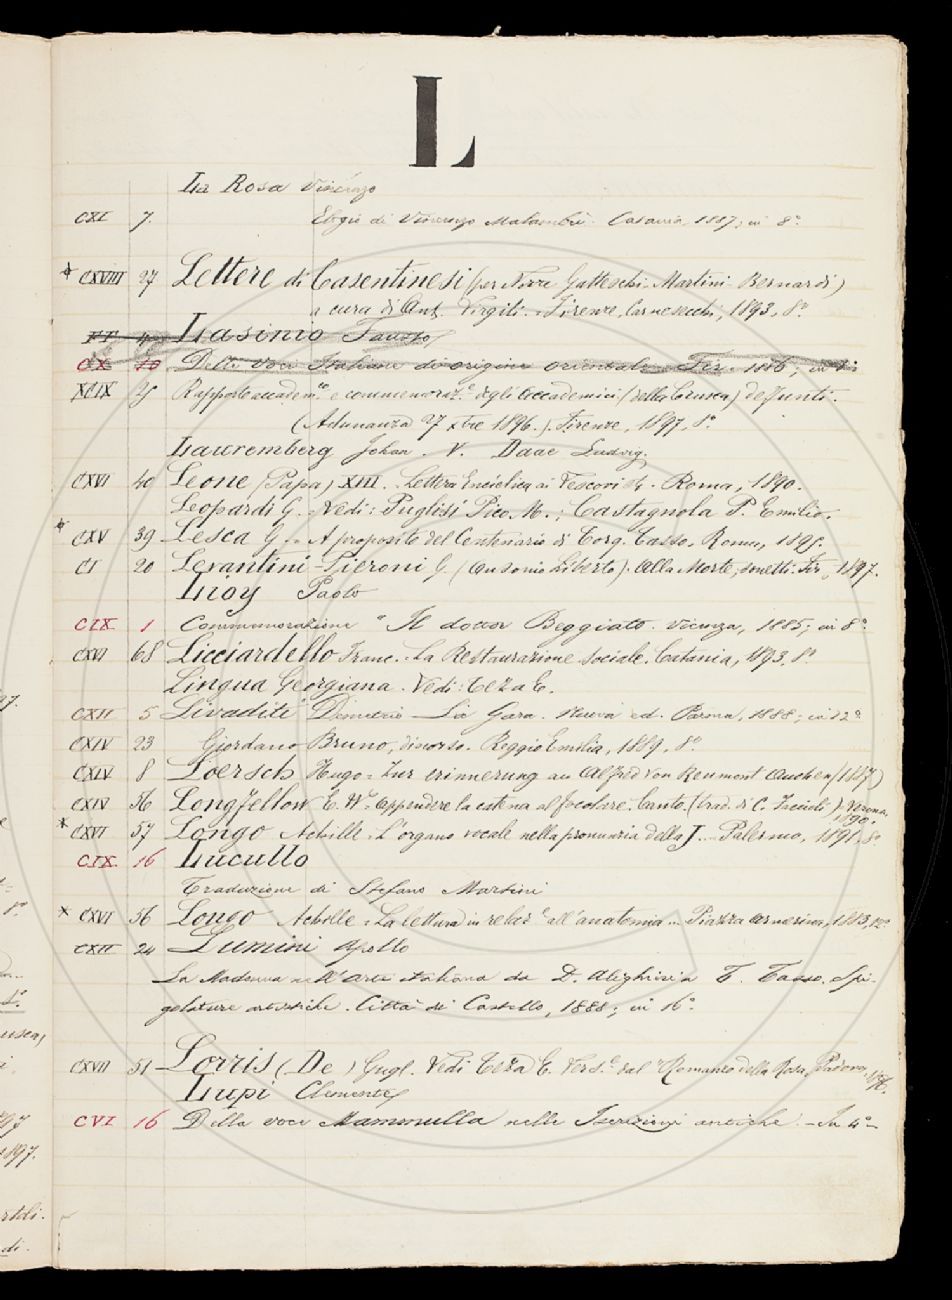 L
La Rosa Vincenzo
CXI 7. Elogio di Vincenzo Catania, 1887; in 8º
* CXVIII 27 Lettere di Casentinesi (per Nozze Gatteschi-Martini-Bernardi)
a cura di Ant. Virgili. Firenze, Carnesecchi, 1893, 8º
4 Lasinio Fausto
CX 10 Delle voci Italiane di origine orientale Fir. 1886; in
XCIX 25 Rapporto accadem.co e commemoraz.e degli Accademici (della Crusca) defunti.
(Adunanza 27 Xbre 1896.). Firenze, 1897, 8º
Lauremberg Johan. V. Daae Ludvig.
CXVI 40 Leone (Papa) XIII. Lettera Enciclica ai Vescovi Roma, 1890.
Leopardi G. Vedi: Puglisi Pico M.; Castagnola P. Emilio.
* CXV 39 Lesca G. - A proposito del Centenario di Torq. Tasso, Roma, 1895.
CI 20 Levantini-Pieroni G. (Ausonio Liberto). Alla Morte, sonetti. Fir., 1897.
Lioy Paolo
CIX 1 Commemorazione Il dottor Beggiato. Vicenza, 1885; in 8º
CXVI 68 Licciardello Franc. La Restaurazione sociale. Catania, 1893, 8º
Lingua Georgiana. Vedi: Teza E.
CXII 5 Livaditi Demetrio - La Gara. Nuova ed. Parma, 1888; in 12º
CXIV 23 Giordano Bruno, discorso. Reggio Emilia, 1889, 8º
CXIV 8 Loersch Hugo = Zur erinnerung an Alfred von Reumont Aachen (1887)
CXIV 56 Longfellow E. W. Appendere la catena al focolare. Canto. (trad. di C. Faccioli). Verona, 1890.
* CXVI 57 Longo Achille. L'organo vocale nella pronunzia della J... Palermo, 1891, 8º
CIX. 16 Lucullo
Traduzione di Stefano Martini
* CXVI 56 Longo Achille. La lettura in relaz.e all'anatomia... Piazza Armerina, 1883, 12º
CXII 24 Lumini Apollo
La Madonna nell'Arte italiana da D. Alighieri a T. Tasso. Spi-
golature artistiche. Città di Castello, 1888; in 16º
CXVII 51 Lorris (De) Gugl. Vedi Teza E. Vers.e dal Romanzo della Rosa. Padova,
Lupi Clemente
CVI 16 Della voce Mammula nelle Iscrizioni antiche. - In 4º -